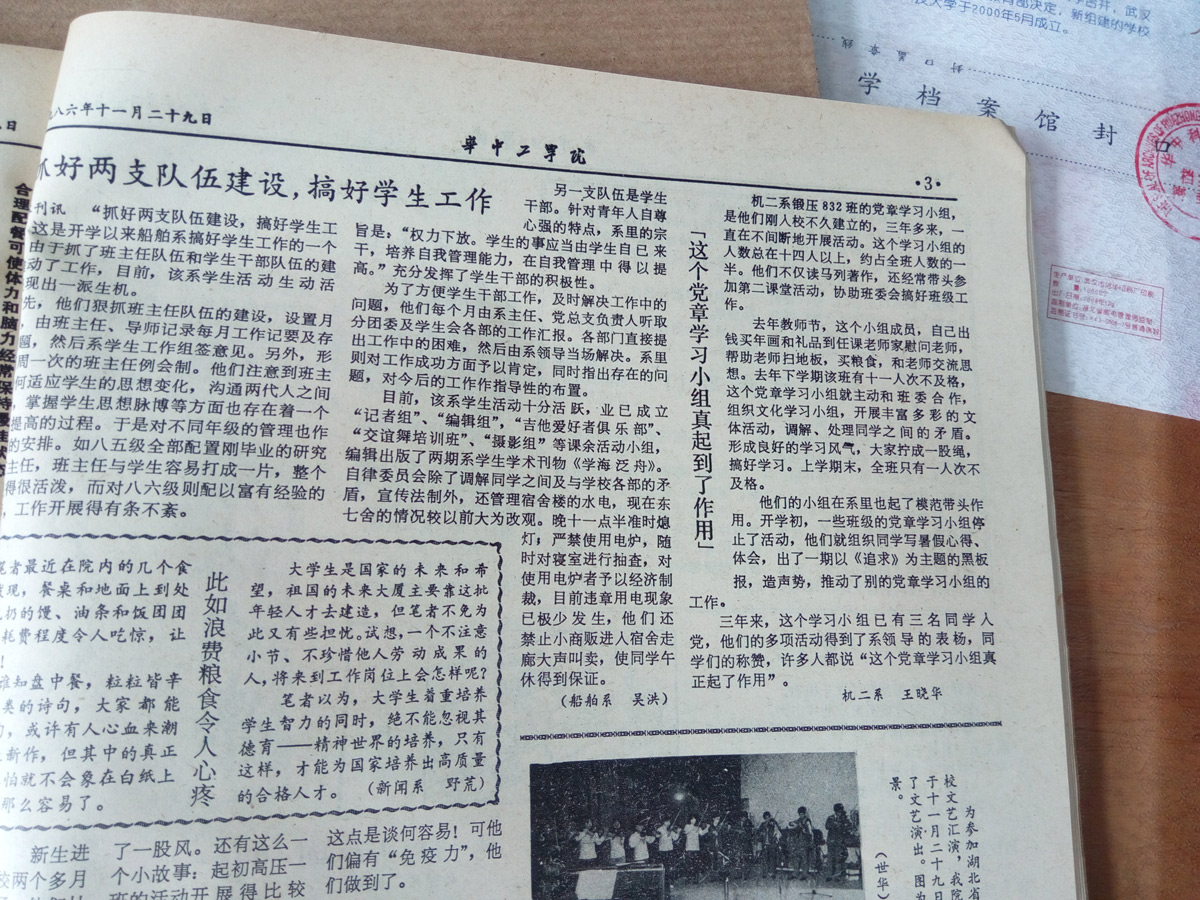 八六年十一月二十九日
华中工学院
·3·
抓好两支队伍建设，搞好学生工作
刊讯 “抓好两支队伍建设，搞好学生工
这是开学以来船舶系搞好学生工作的一个
由于抓了班主任队伍和学生干部队伍的建
动了工作，目前，该系学生活动生动活
现出一派生机。
先，他们狠抓班主任队伍的建设，设置月
，由班主任、导师记录每月工作记要及存
题，然后系学生工作组签意见。另外，形
周一次的班主任例会制。他们注意到班主
何适应学生的思想变化，沟通两代人之间
，掌握学生思想脉博等方面也存在着一个
提高的过程。于是对不同年级的管理也作
的安排。如八五级全部配置刚毕业的研究
主任，班主任与学生容易打成一片，整个
得很活泼，而对八六级则配以富有经验的
，工作开展得有条不紊。
另一支队伍是学生
干部。针对青年人自尊
心强的特点，系里的宗
旨是：“权力下放。学生的事应当由学生自已来
干，培养自我管理能力，在自我管理中得以提
高。”充分发挥了学生干部的积极性。
为了方便学生干部工作，及时解决工作中的
问题，他们每个月由系主任、党总支负责人听取
分团委及学生会各部的工作汇报。各部门直接提
出工作中的困难，然后由系领导当场解决。系里
则对工作成功方面予以肯定，同时指出存在的问
题，对今后的工作作指导性的布置。
目前，该系学生活动十分活跃，业已成立
“记者组”、“编辑组”，“吉他爱好者俱乐部”、
“交谊舞培训班”、“摄影组”等课余活动小组，
编辑出版了两期系学生学术刊物《学海泛舟》。
自律委员会除了调解同学之间及与学校各部的矛
盾，宣传法制外，还管理宿舍楼的水电，现在东
七舍的情况较以前大为改观。晚十一点半准时熄
灯；严禁使用电炉，随
时对寝室进行抽查，对
使用电炉者予以经济制
裁，目前违章用电现象
已极少发生，他们还
禁止小商贩进入宿舍走
廊大声叫卖，使同学午
休得到保证。
（船舶系 吴洪）
「这个党章学习小组真起到了作用」
机二系锻压832班的党章学习小组，
是他们刚人校不久建立的，三年多来，一
直在不间断地开展活动。这个学习小组的
人数总在十四人以上，约占全班人数的一
半。他们不仅读马列著作，还经常带头参
加第二课堂活动，协助班委会搞好班级工
作。
去年教师节，这个小组成员，自己出
钱买年画和礼品到任课老师家慰问老师，
帮助老师扫地板，买粮食，和老师交流思
想。去年下学期该班有十一人次不及格，
这个党章学习小组就主动和班委合作，
组织文化学习小组，开展丰富多彩的文
体活动，调解、处理同学之间的矛盾。
形成良好的学习风气，大家拧成一股绳，
搞好学习。上学期末，全班只有一人次不
及格。
他们的小组在系里也起了模范带头作
用。开学初，一些班级的党章学习小组停
止了活动，他们就组织同学写暑假心得、
体会，出了一期以《追求》为主题的黑板
报，造声势，推动了别的党章学习小组的
工作。
三年来，这个学习小组已有三名同学人
党，他们的多项活动得到了系领导的表杨，同
学们的称赞，许多人都说“这个党章学习小组真
正起了作用”。
机二系 王晓华
合理配餐可使体力和脑力经常保持
此如浪费粮食令人心疼
笔者最近在院内的几个食
发现，餐桌和地面上到处
扔的馒、油条和饭团团
耗费程度令人吃惊，让
！
谁知盘中餐，粒粒皆辛
类的诗句，大家都能
，或许有人心血来潮
新作，但其中的真正
怕就不会象在白纸上
那么容易了。
大学生是国家的未来和希
望，祖国的未来大厦主要靠这批
年轻人才去建造，但笔者不免为
此又有些担忧。试想，一个不注意
小节、不珍惜他人劳动成果的
人，将来到工作岗位上会怎样呢？
笔者以为，大学生着重培养
学生智力的同时，绝不能忽视其
德育——精神世界的培养，只有
这样，才能为国家培养出高质量
的合格人才。（新闻系 野荒）
新生进
校两个多月
了一股风。还有这么一
个小故事：起初高压一
班的活动开展得比较
这点是谈何容易！可他
们偏有“免疫力”，他
们做到了。
为参加湖北省
校文艺汇演，我院
于十一月二十九日
了文艺演出。图为
景。
（世华）
决定，新组建的学校
大学于2000年5月成立。
学档案馆封口